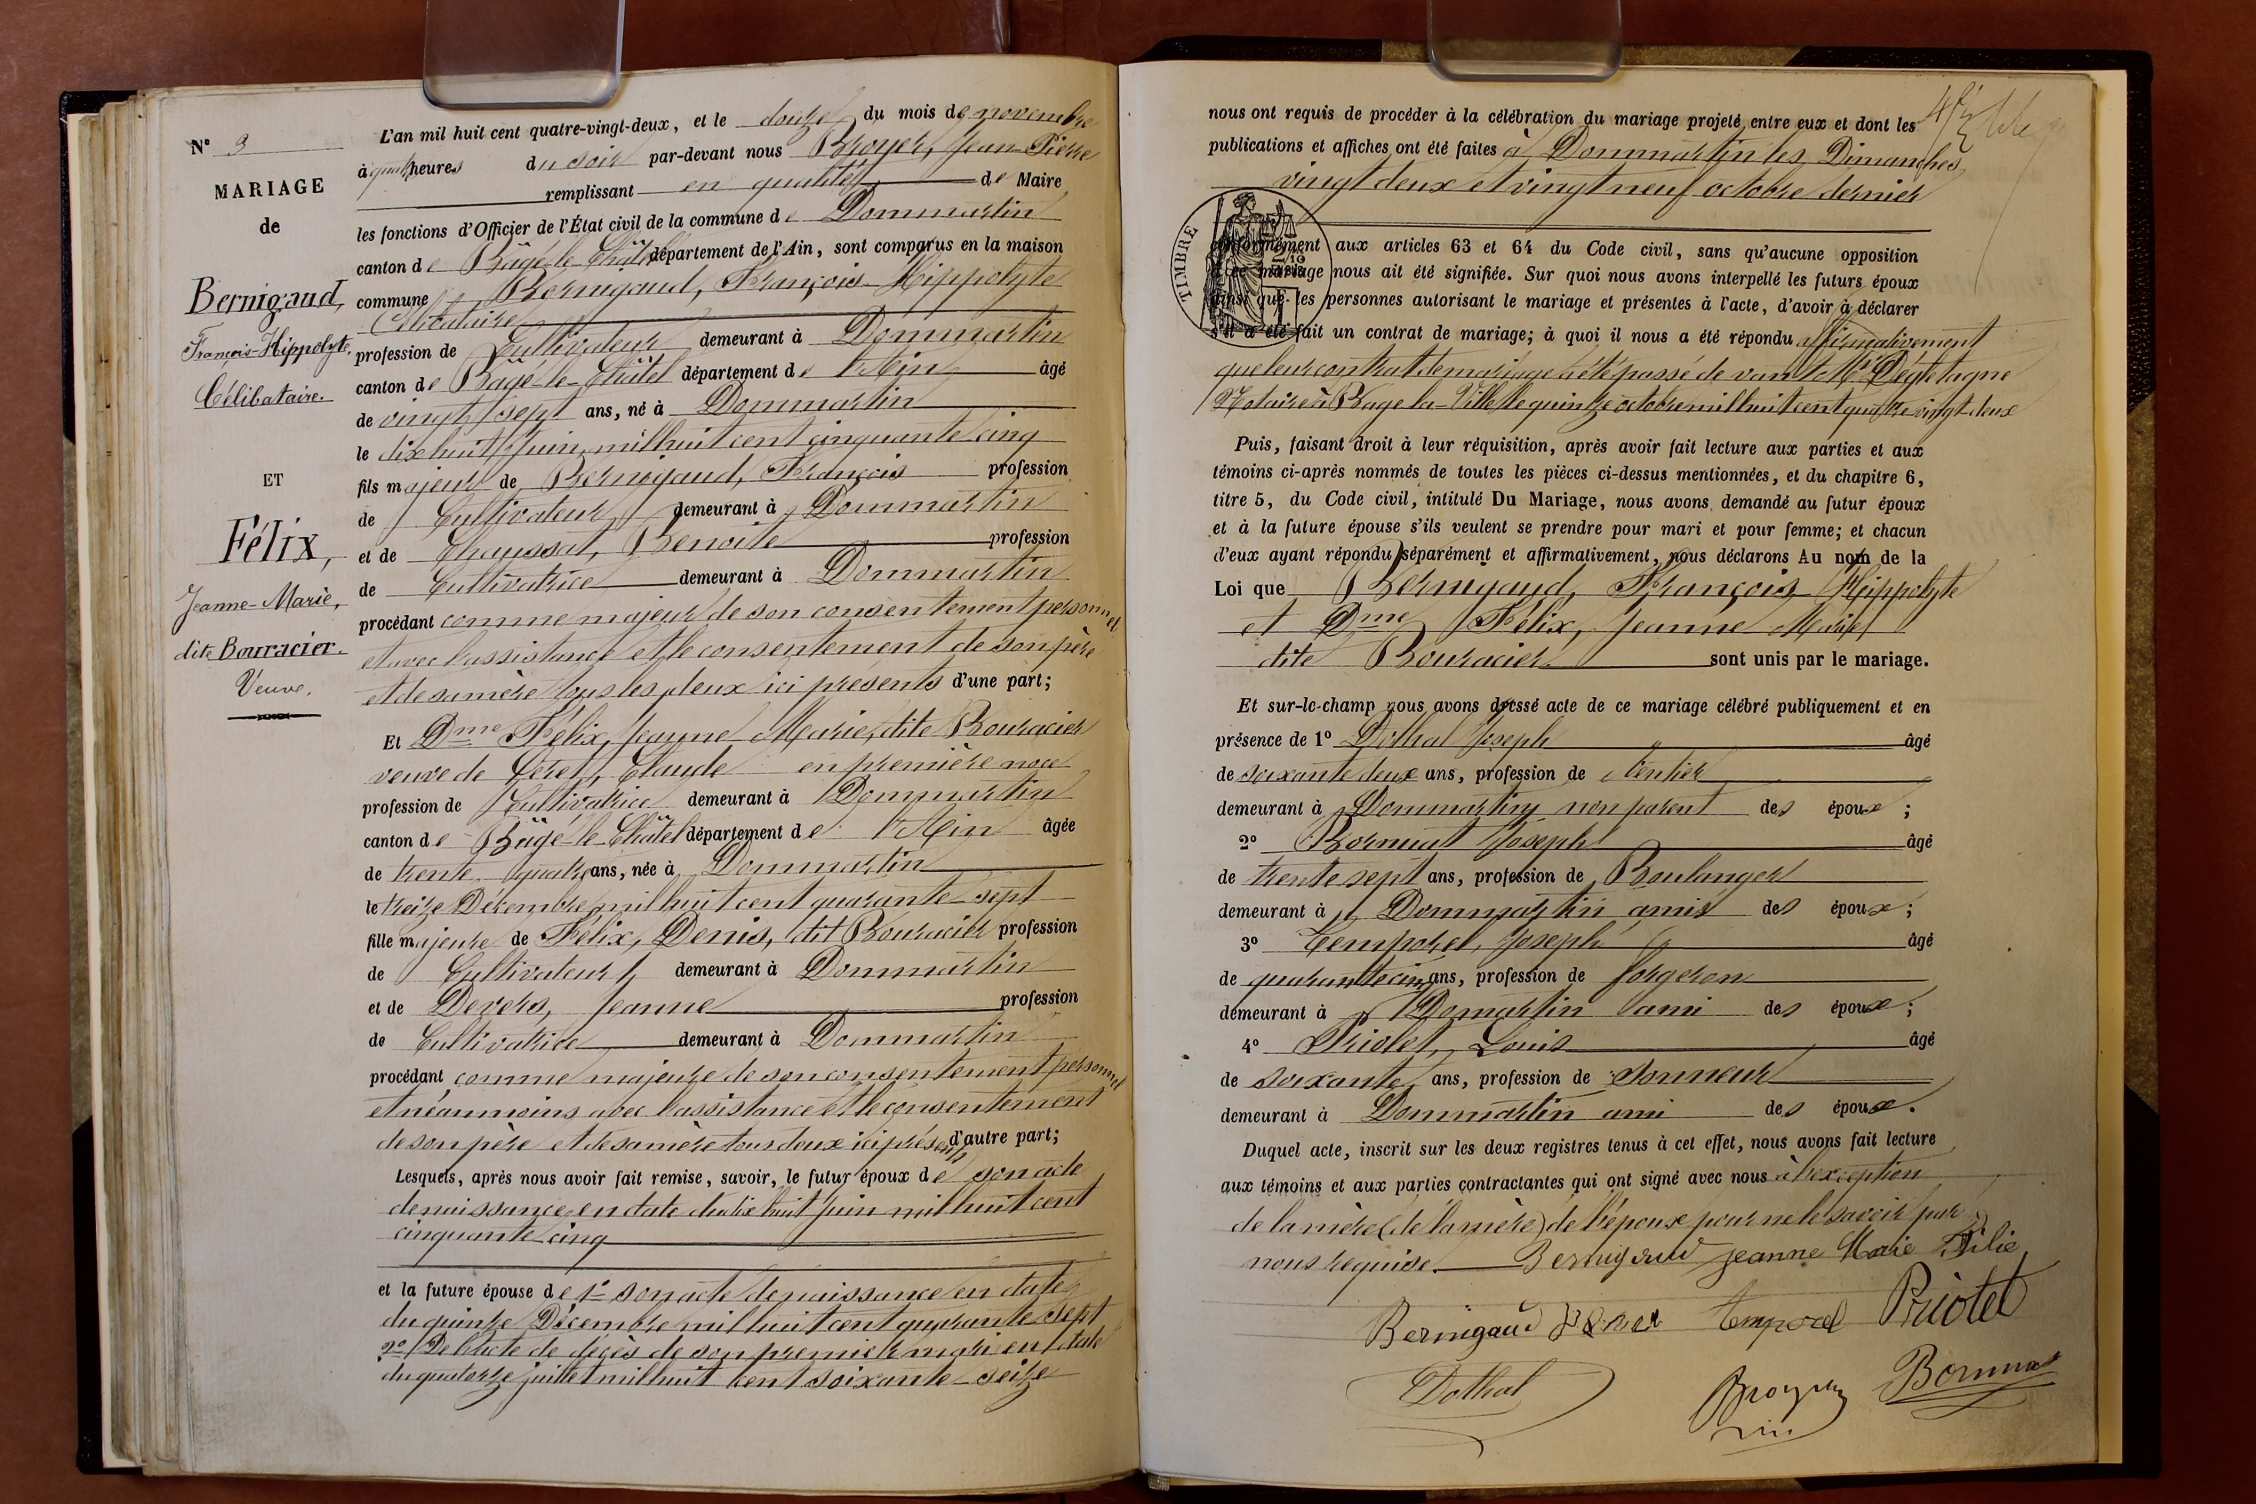 N° 9
MARIAGE
de
Bernigaud,
François-Hippolyte,
Célibataire.
ET
Félix,
Jeanne-Marie,
dite Bouracier.
Veuve.
L'an mil huit cent quatre-vingt-deux, et le douze du mois de novembre
à quatre heures du soir par-devant nous Broyer, Jean-Pierre
remplissant en qualité de Maire
les fonctions d'Officier de l'État civil de la commune de Dommartin
canton de Bâgé-le-Châtel département de l'Ain, sont comparus en la maison
commune Bernigaud, François-Hippolyte
Célibataire
profession de Cultivateur demeurant à Dommartin
canton de Bâgé-le-Châtel département de l'Ain âgé
de vingt sept ans, né à Dommartin
le dix huit Juin mil huit cent cinquante cinq
fils majeur de Bernigaud, François profession
de Cultivateur demeurant à Dommartin
et de Chaussat, Benoite profession
de Cultivatrice demeurant à Dommartin
procédant comme majeur de son consentement personnel
et avec l'assistance et le consentement de son père
et de sa mère tous les deux ici presents d'une part;
Et Dme Félix, Jeanne Marie, dite Bouracier
veuve de Céret, Claude en première noce
profession de Cultivatrice demeurant à Dommartin
canton de Bâgé-le-Châtel département de l'Ain âgée
de trente quatre ans, née à Dommartin
le treize Décembre mil huit cent quarante-sept
fille majeure de Félix, Denis, dit Bouracier profession
de Cultivateur demeurant à Dommartin
et de Devers, Jeanne profession
de Cultivatrice demeurant à Dommartin
procédant comme majeure de son consentement personnel
et néanmoins avec l'assistance et le consentement
de son père et de sa mère tous deux ici présents d'autre part;
Lesquels, après nous avoir fait remise, savoir, le futur époux de son acte
de naissance en date du dix huit Juin mil huit cent
cinquante cinq
et la future épouse de 1° son acte de naissance en date
du quinze Décembre mil huit cent quarante sept
2° De l'acte de décès de son premier mari en date
du quatorze juillet mil huit cent soixante-seize
nous ont requis de procéder à la célébration du mariage projeté entre eux et dont les
publications et affiches ont été faites à Dommartin les Dimanches
vingt deux et vingt neuf octobre dernier
TIMBRE
conformément aux articles 63 et 64 du Code civil, sans qu'aucune opposition
à ce mariage nous ait été signifiée. Sur quoi nous avons interpellé les futurs époux
ainsi que les personnes autorisant le mariage et présentes à l'acte, d'avoir à déclarer
s'il a été fait un contrat de mariage; à quoi il nous a été répondu affirmativement
que leur contrat de mariage a été passé devant Me Dégletagne
Notaire à Bage-la-Ville le quinze octobre mil huit cent quatre vingt-deux
Puis, faisant droit à leur réquisition, après avoir fait lecture aux parties et aux
témoins ci-après nommés de toutes les pièces ci-dessus mentionnées, et du chapitre 6,
titre 5, du Code civil, intitulé Du Mariage, nous avons demandé au futur époux
et à la future épouse s'ils veulent se prendre pour mari et pour femme; et chacun
d'eux ayant répondu séparément et affirmativement, nous déclarons Au nom de la
Loi que Bernigaud, François Hippolyte
et Dme Félix, Jeanne Marie
dite Bouracier sont unis par le mariage.
Et sur-le-champ nous avons dressé acte de ce mariage célébré publiquement et en
présence de 1° Dothal Joseph âgé
de soixante deux ans, profession de rentier
demeurant à Dommartin non parent des époux;
2° Bornuat Joseph âgé
de trente sept ans, profession de Boulanger
demeurant à Dommartin amis des époux;
3° Temporel, Joseph âgé
de quarante cinq ans, profession de forgeron
demeurant à Domartin ami des époux;
4° Priolet, Louis âgé
de soixante ans, profession de Sonneur
demeurant à Dommartin ami des époux.
Duquel acte, inscrit sur les deux registres tenus à cet effet, nous avons fait lecture
aux témoins et aux parties contractantes qui ont signé avec nous à l'exception
de la mère (de la mère) de l'épouse pour ne le savoir par
nous requise. Bernigaud Jeanne Marie Félix
Bernigaud Temporel Priolet
Dothal Broyer Bornuat